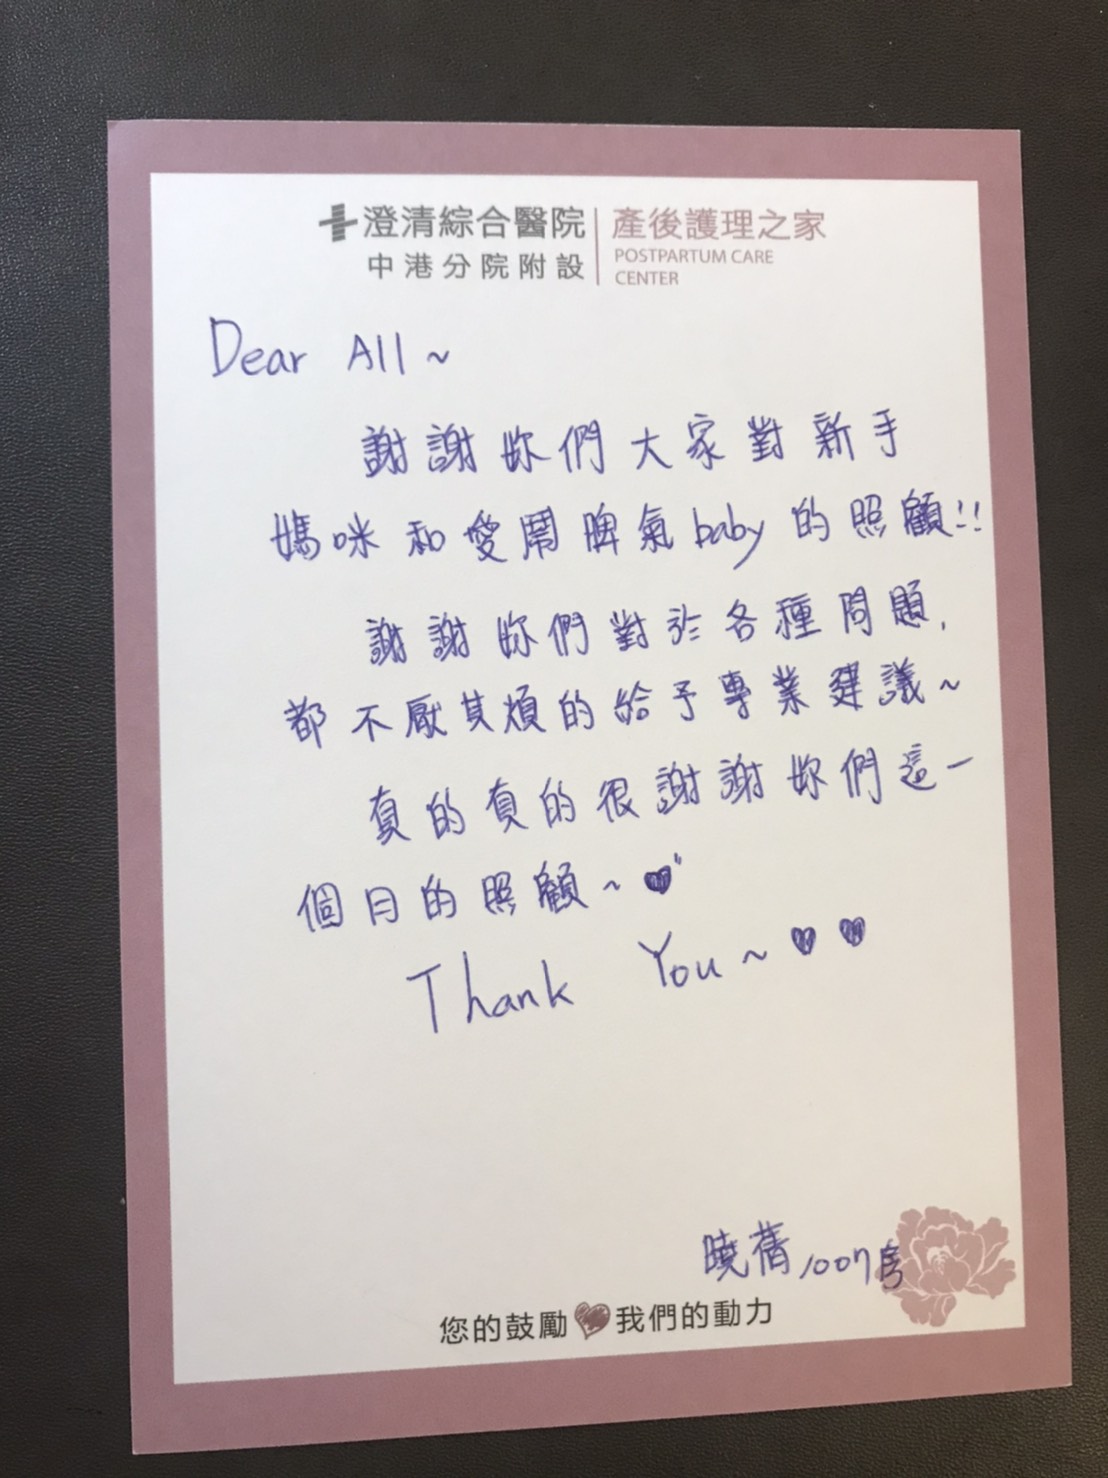 澄清綜合醫院
中港分院附設
產後護理之家
POSTPARTUM CARE
CENTER
Dear All~
謝謝妳們大家對新手
媽咪和愛鬧脾氣baby的照顧!!
謝謝妳們對於各種問題,
都不厭其煩的給予專業建議~
真的真的很謝謝妳們這一
個月的照顧~♥
Thank You~♥♥
曉蒨 1007房
您的鼓勵♥我們的動力